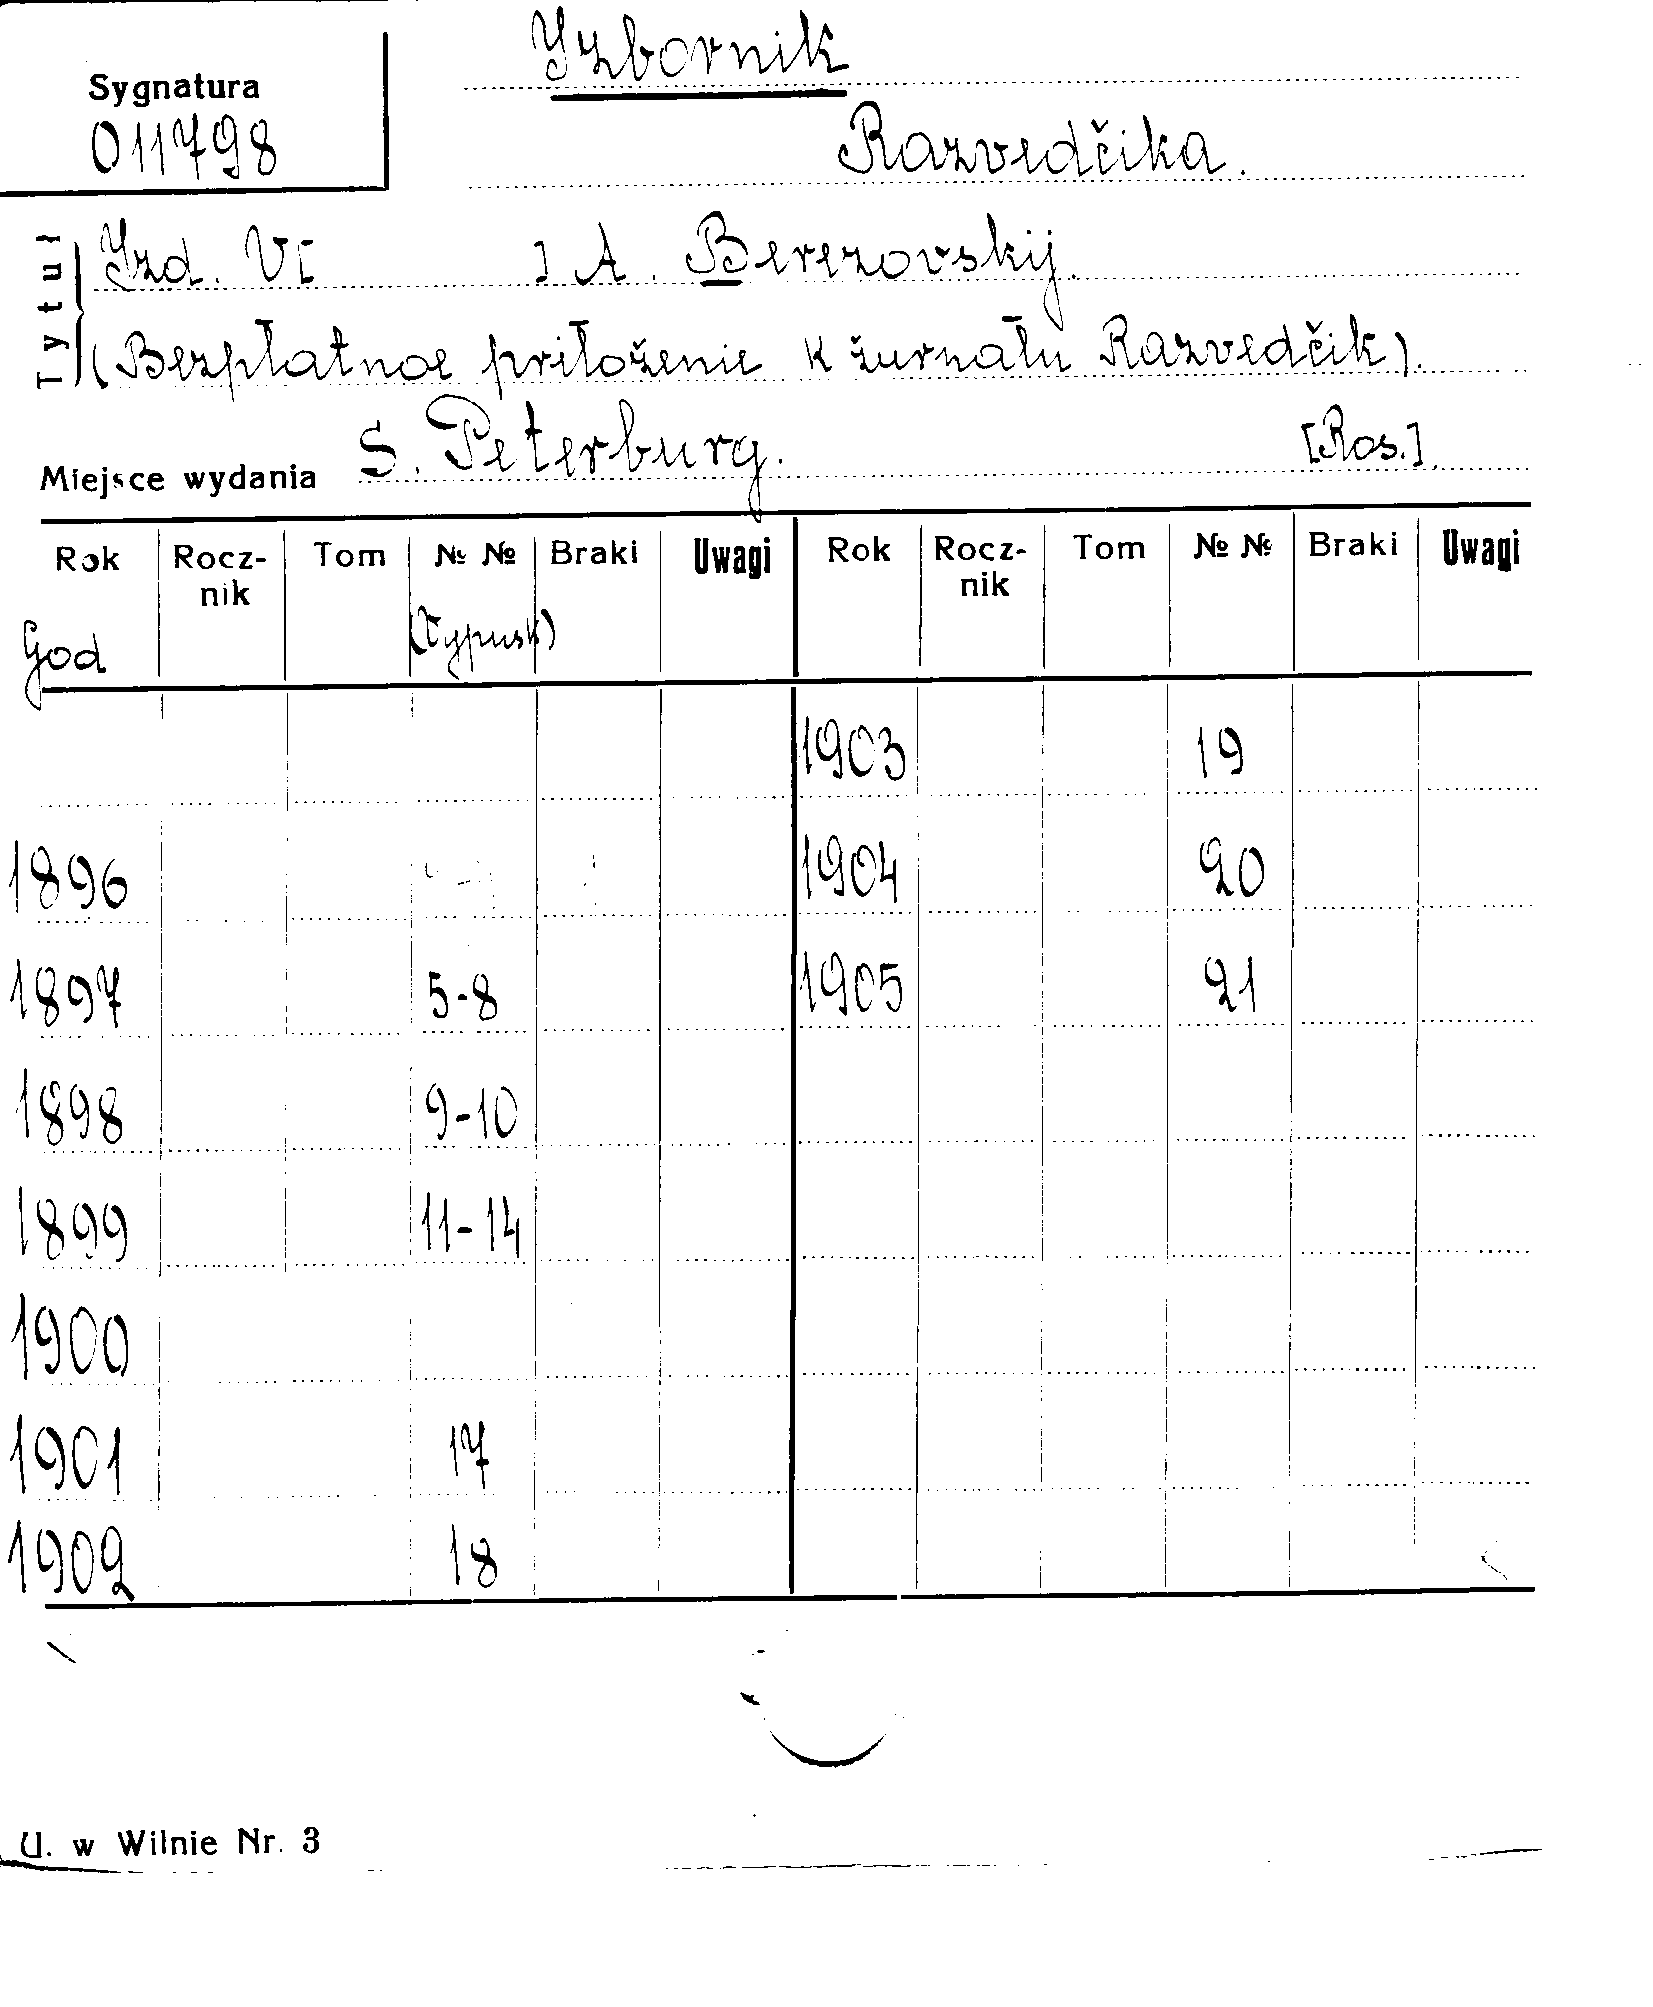 Izbornik
Sygnatura
011798
Razvedčika.
Tytuł
Izd. V[ ] A. Berezovskij.
(Bezpłatnoe priłoženie k žurnału Razvedčik).
Miejsce wydania S. Peterburg. [Ros.]
Rok Rocz-nik Tom №№ Braki Uwagi Rok Rocz-nik Tom №№ Braki Uwagi
God (Vypusk)
1903 19
1896 1904 20
1897 5-8 1905 21
1898 9-10
1899 11-14
1900
1901 17
1902 18
U. w Wilnie Nr. 3